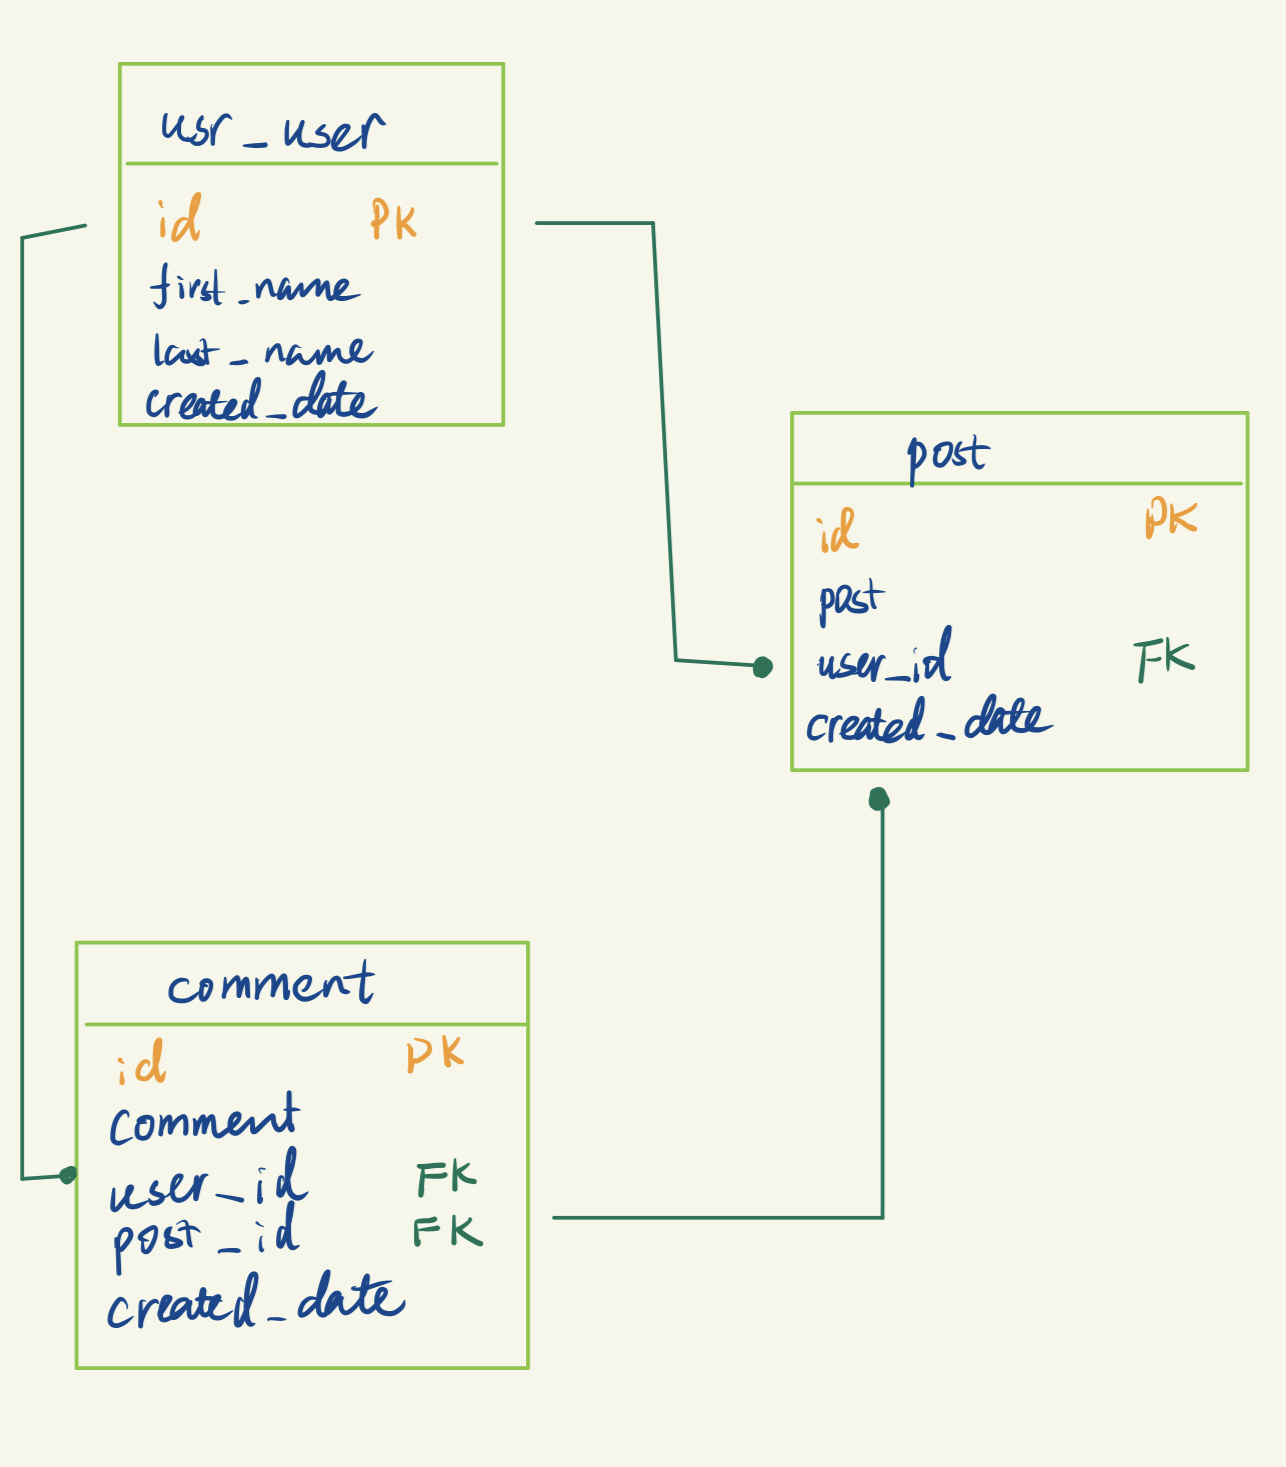 usr_user
id PK
first_name
last_name
created_date
post
id PK
post
user_id FK
created_date
comment
id PK
comment
user_id FK
post_id FK
created_date